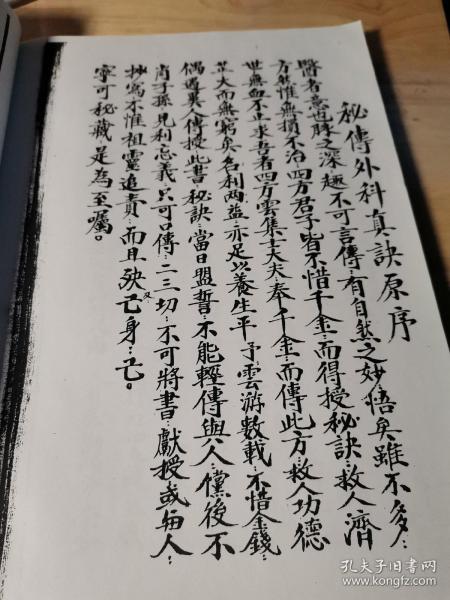 秘傳外科真訣原序
醫者意也脉之深趣不可言傳有自然之妙悟矣雖不多
方然惟無損不治四方君子皆不惜千金而得授秘訣救人濟
世無血不止求吾者四方雲集士大夫奉千金而傳此方救人功德
莫大而無窮矣名利兩益亦足以養生平予雲游數載不惜金錢
偶遇異人傳授此書秘訣當日盟誓不能輕傳與人儻後不
肖子孫見利忘義只可口傳二三切不可將書獻授或
抄寫不惟祖靈追責而且殃及己身己
寧可秘藏是為至囑。
孔夫子旧书网
www.kongfz.com